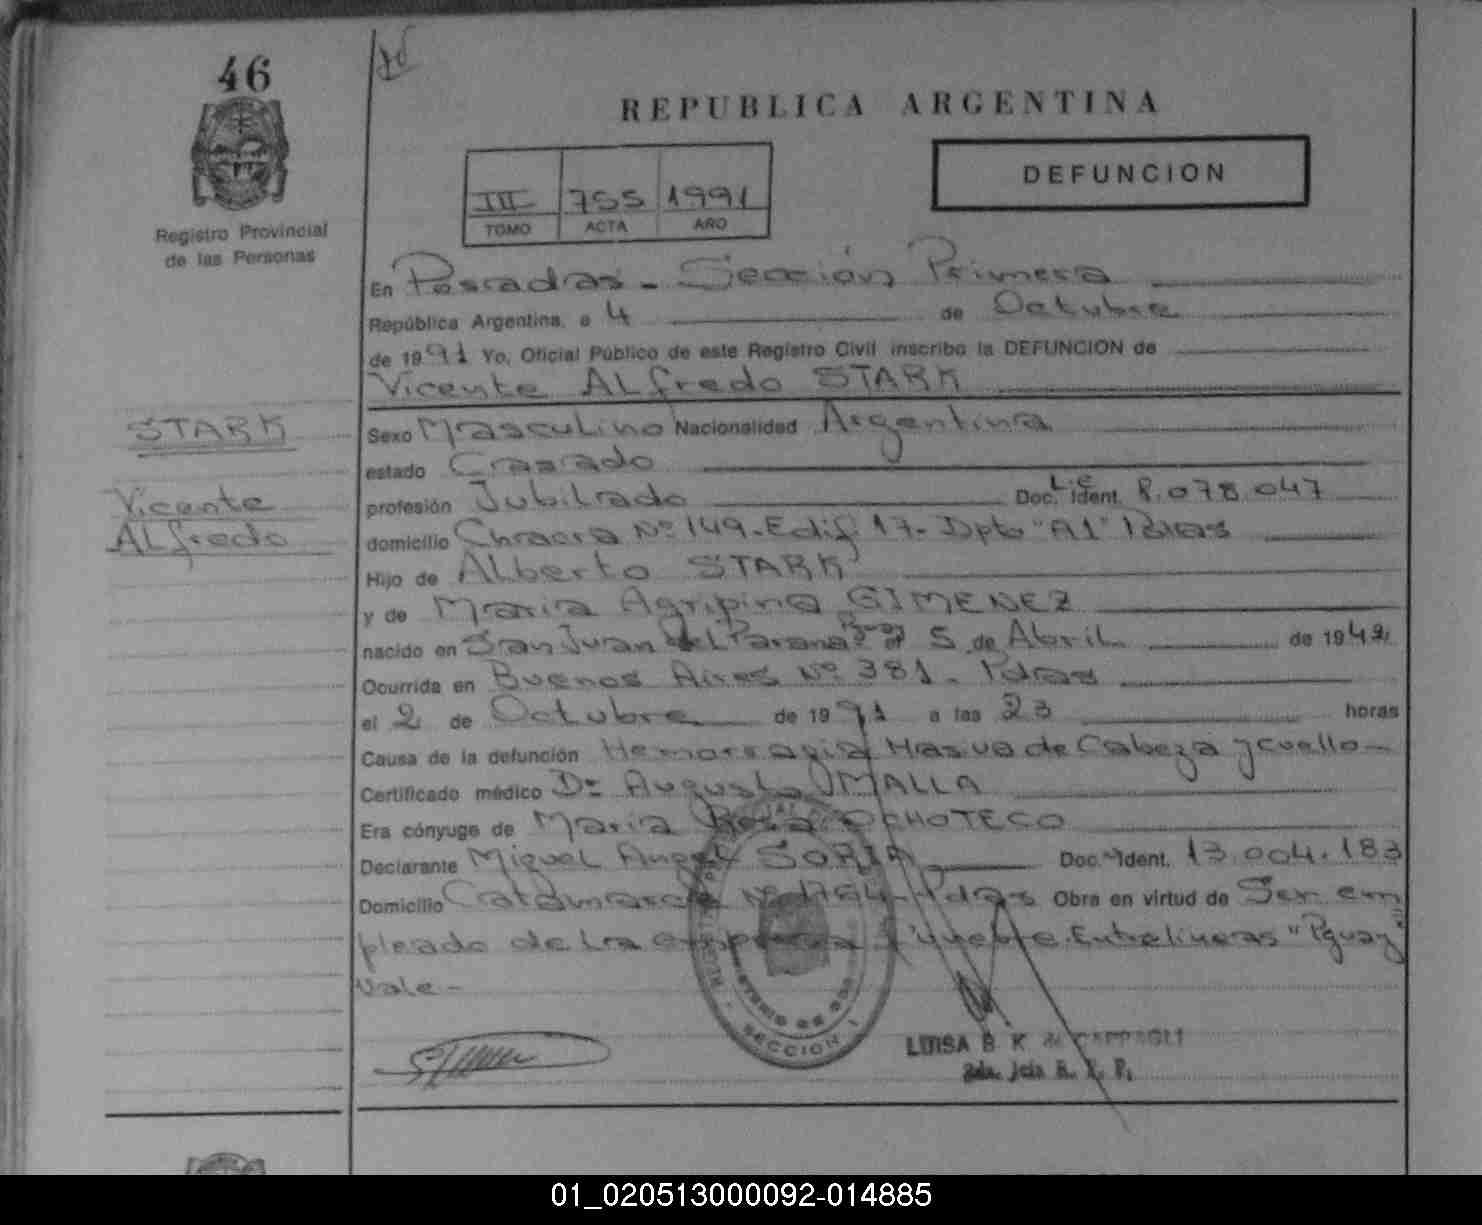 46
REPUBLICA ARGENTINA
DEFUNCION
III 755 1991
TOMO ACTA AÑO
Registro Provincial
de las Personas
En Posadas - Sección Primera
República Argentina, a 4 de Octubre
de 1991 Yo, Oficial Público de este Registro Civil inscribo la DEFUNCION de
Vicente ALfredo STARK
STARK
Vicente
ALfredo
Sexo Masculino Nacionalidad Argentina
estado Casado
profesión Jubilado Doc. L.E Ident. 8.078.047
domicilio Chacra Nº 149-Edif. 17- Dpto "A1" Pdas
Hijo de Alberto STARK
y de Maria Agripina GIMENEZ
nacido en San Juan del Parana Pguay el 5 de Abril de 1942
Ocurrida en Buenos Aires Nº 381 - Pdas
el 2 de Octubre de 1991 a las 23 horas
Causa de la defunción Hemorragia Masiva de Cabeza y cuello-
Certificado médico Dr Augusto MALLA
Era cónyuge de Maria Rosa OCHOTECO
Declarante Miguel Angel SORIA Doc. Ident. 13.004.183
Domicilio Catamarca Nº 1764 - Pdas Obra en virtud de Ser em
pleado de La empresa fúnebre. Entrelineas "Pguay"
Vale-
SECCION 1
LUISA B K de CAPPAGLI
01_020513000092-014885